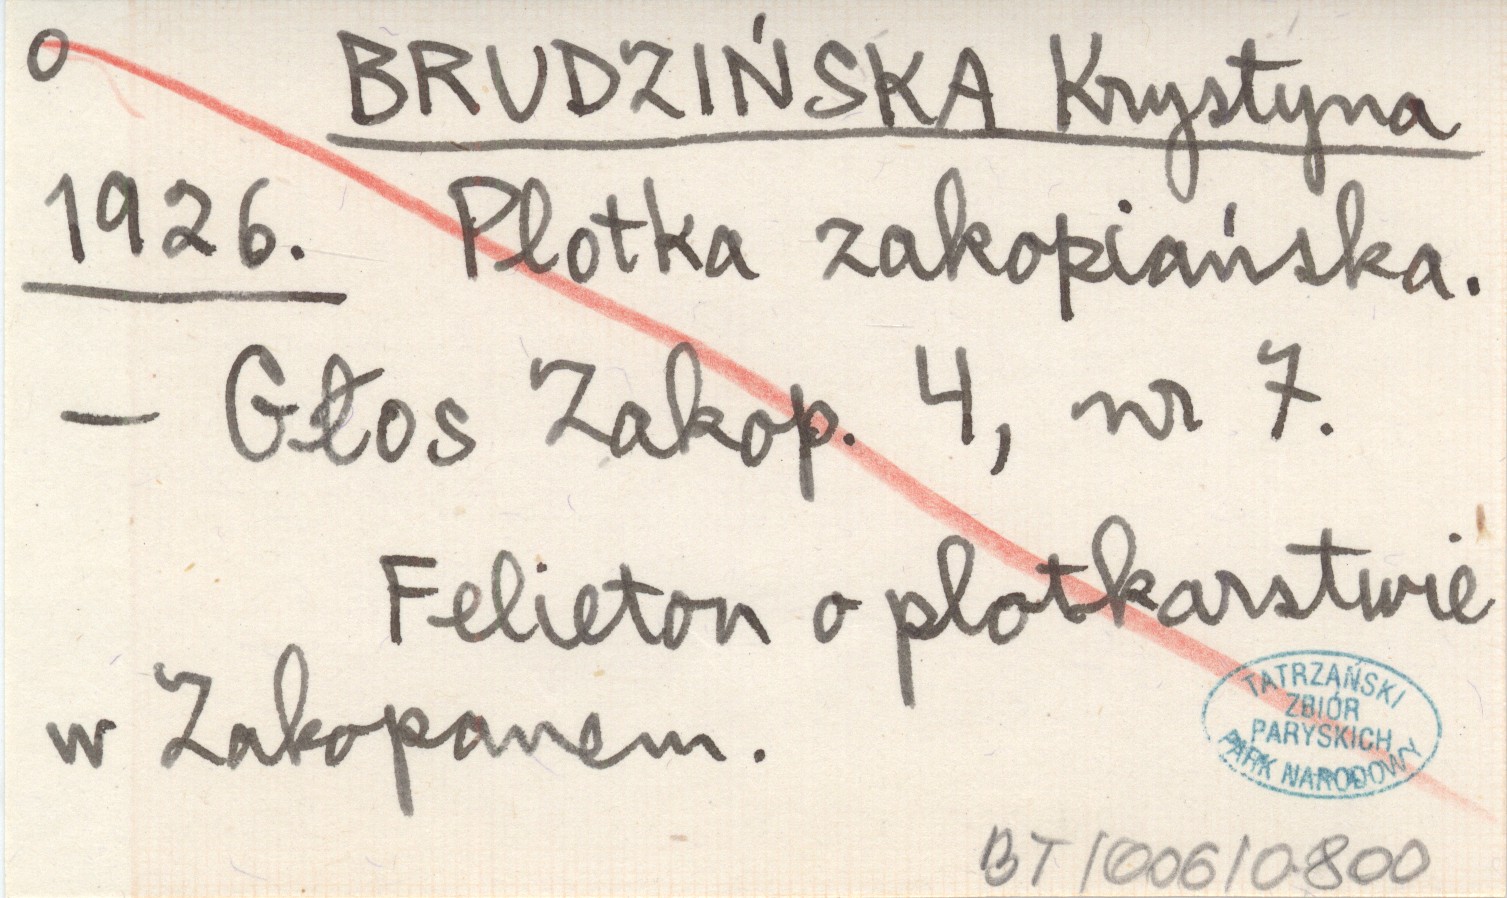 o BRUDZIŃSKA Krystyna
1926. Plotka zakopiańska.
— Głos Zakop. 4, nr 7.
Felieton o plotkarstwie
w Zakopanem.
TATRZAŃSKI
ZBIÓR
PARYSKICH
PARK NARODOWY
BT/006/0800